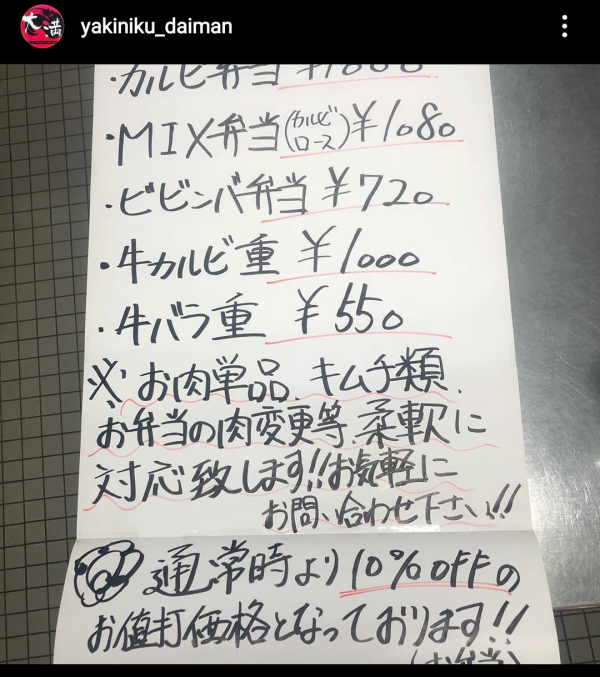 大満
yakiniku_daiman
・カルビ弁当 ¥1000
・MIX弁当(カルビ ロース)¥1080
・ビビンバ弁当 ¥720
・牛カルビ重 ¥1000
・牛バラ重 ¥550
※お肉単品、キムチ類、
お弁当の肉変更等、柔軟に
対応致します!!お気軽に
お問い合わせ下さい!!
通常時より10%OFFの
お値打価格となっております!!
(お弁当)